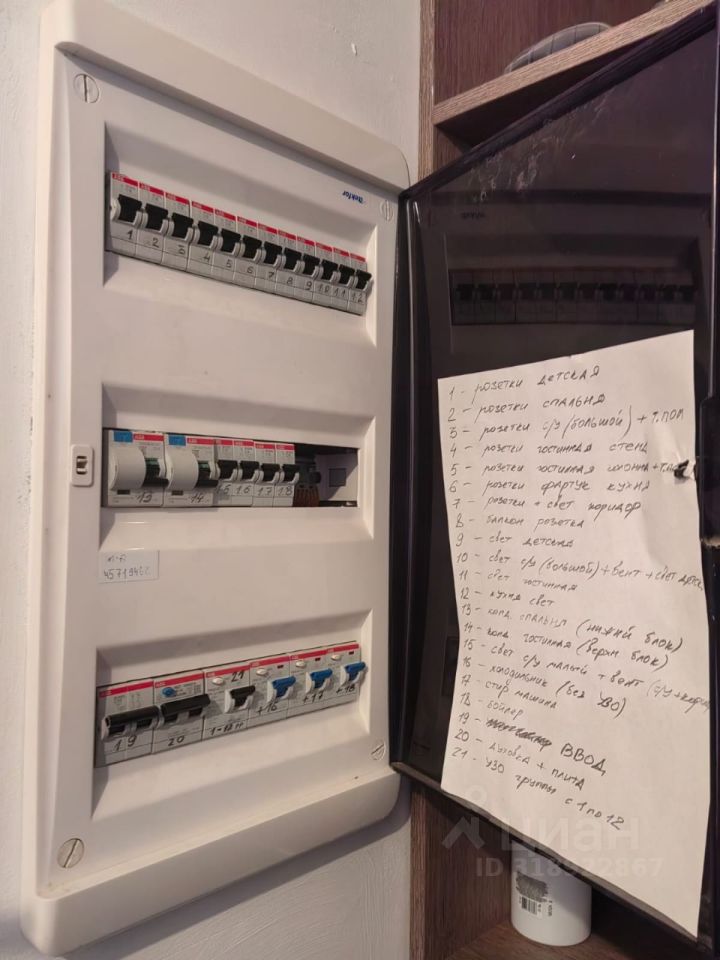 tekfor
1 2 3 4 5 6 7 8 9 10 11 12
13 14 15 16 17 18
21
19 20 1-12 +16 +17 +18
1 - розетки детская
2 - розетки спальня
3 - розетки с/у (большой) + т.пол
4 - розетки гостинная стена
5 - розетки гостинная
6 - розетки фартук кухня
7 - розетки + свет коридор
8 - балкон розетка
9 - свет детская
10 - свет с/у (большой) + вент + свет
11 - свет гостинная
12 - кухня свет
13 - конд. спальня (нижний блок)
14 - конд гостинная (верхн блок)
15 - свет с/у малый + вент
16 - холодильник (без УЗО)
17 - стир машина
18 - бойлер
19 - ВВОД
20 - духовка + плита
21 - УЗО группы с 1 по 12
циан
ID 318522867